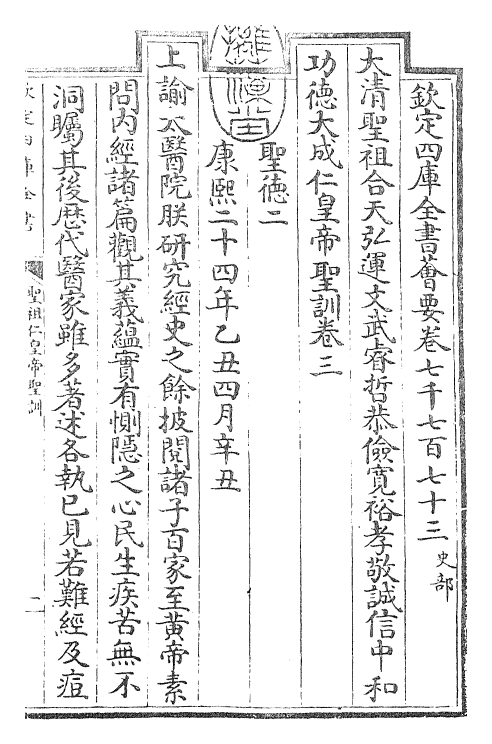 欽定四庫全書薈要卷七千七百七十三 史部
大清聖祖合天弘運文武睿哲恭儉寬裕孝敬誠信中和
功德大成仁皇帝聖訓卷三
聖德二
康熙二十四年乙丑四月辛丑
上諭太醫院朕研究經史之餘披閱諸子百家至黃帝素
問内經諸篇觀其義蘊實有惻隱之心民生疾苦無不
洞矚其後歴代醫家雖多著述各執己見若難經及痘
欽定四庫全書
聖祖仁皇帝聖訓
一